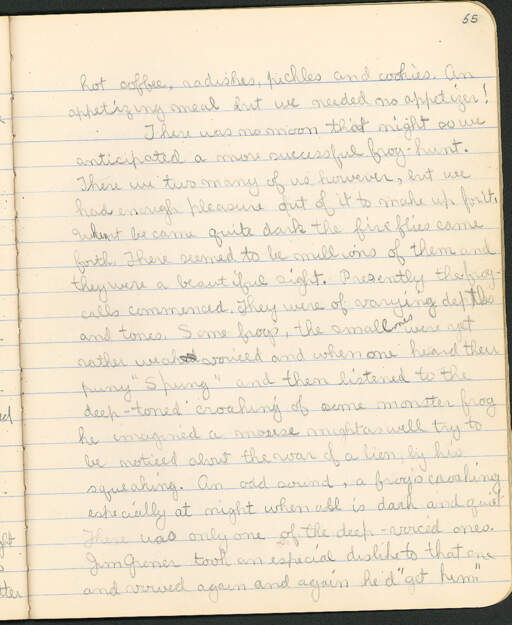 55
hot coffee, radishes, pickles and cookies. An
appetizing meal but we needed no appetizer!
There was no moon that night so we
anticipated a more successful frog-hunt.
There we two many of us however, but we
had enough pleasure out of it to make up for it.
When it became quite dark the fireflies came
forth. There seemed to be millions of them and
they were a beautiful sight. Presently the frog-
calls commenced. They were of varying depths
and tones. Some frogs, the small ones were apt
rather weak voiced and when one heard their
puny "Spung" and then listened to the
deep-toned croaking of some monster frog
he imagined a mouse might as well try to
be noticed above the roar of a lion, by his
squeaking. An odd sound, a frog's croaking
especially at night when all is dark and quiet
There was only one of the deep-voiced ones.
Jim took an especial dislike to that one
and vowed again and again he'd "get him."